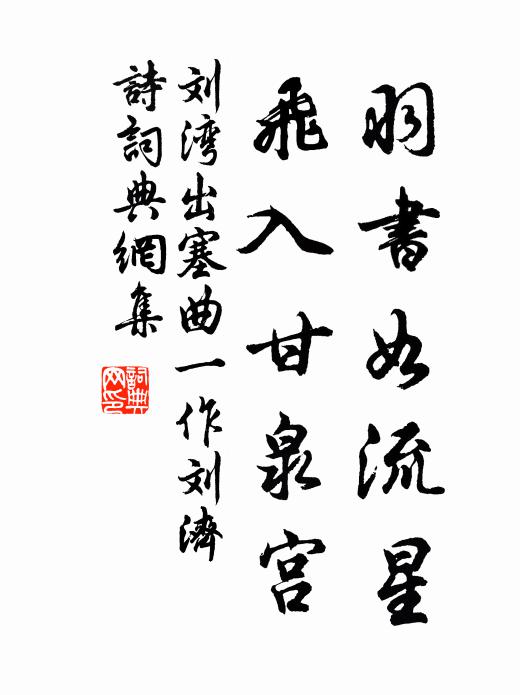 羽書如流星
飛入甘泉宫
刘湾出塞曲一作刘濟
詩詞典網集
詞典網印